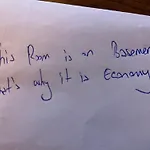 his Room is in Basemen
at's why it is Economy